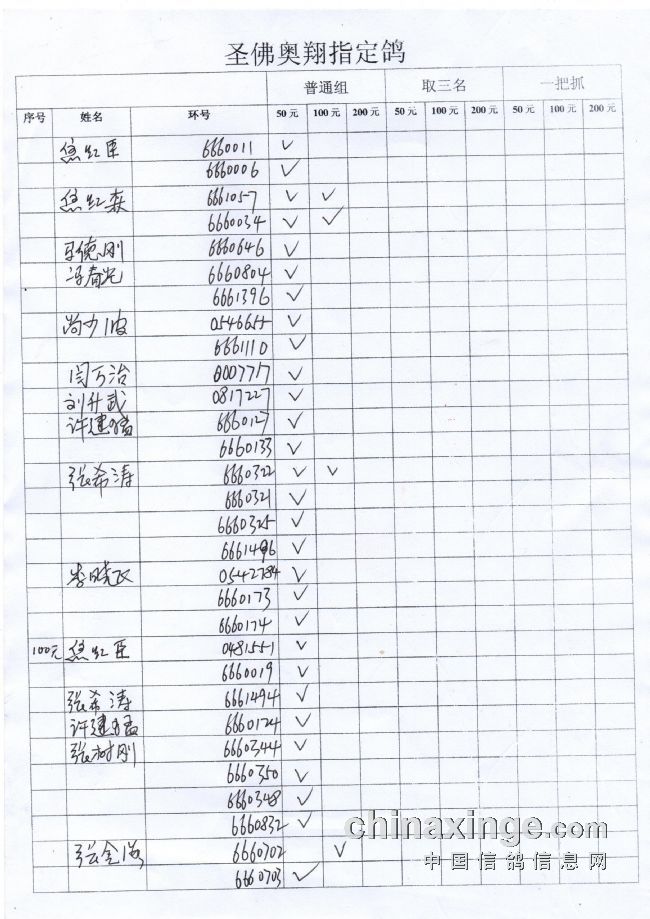 圣佛奥翔指定鸽
普通组 取三名 一把抓
序号 姓名 环号 50元 100元 200元 50元 100元 200元 50元 100元 200元
焦红臣 6660011 ✓
6660006 ✓
焦红森 6661057 ✓ ✓
6660034 ✓ ✓
马德刚 6660646 ✓
冯春光 6660804 ✓
6661396 ✓
尚少波 0546655 ✓
6661110 ✓
闫万治 0007717 ✓
刘升武 0817227 ✓
许建猛 6660127 ✓
6660133 ✓
张希涛 6660322 ✓ ✓
6660321 ✓
6660325 ✓
6661496 ✓
李晓飞 0542784 ✓
6660173 ✓
6660174 ✓
100元 焦红臣 0481551 ✓
6660019 ✓
张希涛 6661494 ✓
许建猛 6660124 ✓
张树刚 6660344 ✓
6660350 ✓
6660348 ✓
6660832 ✓
张金 6660702 ✓
6660703 ✓
chinaxinge.com
中国信鸽信息网